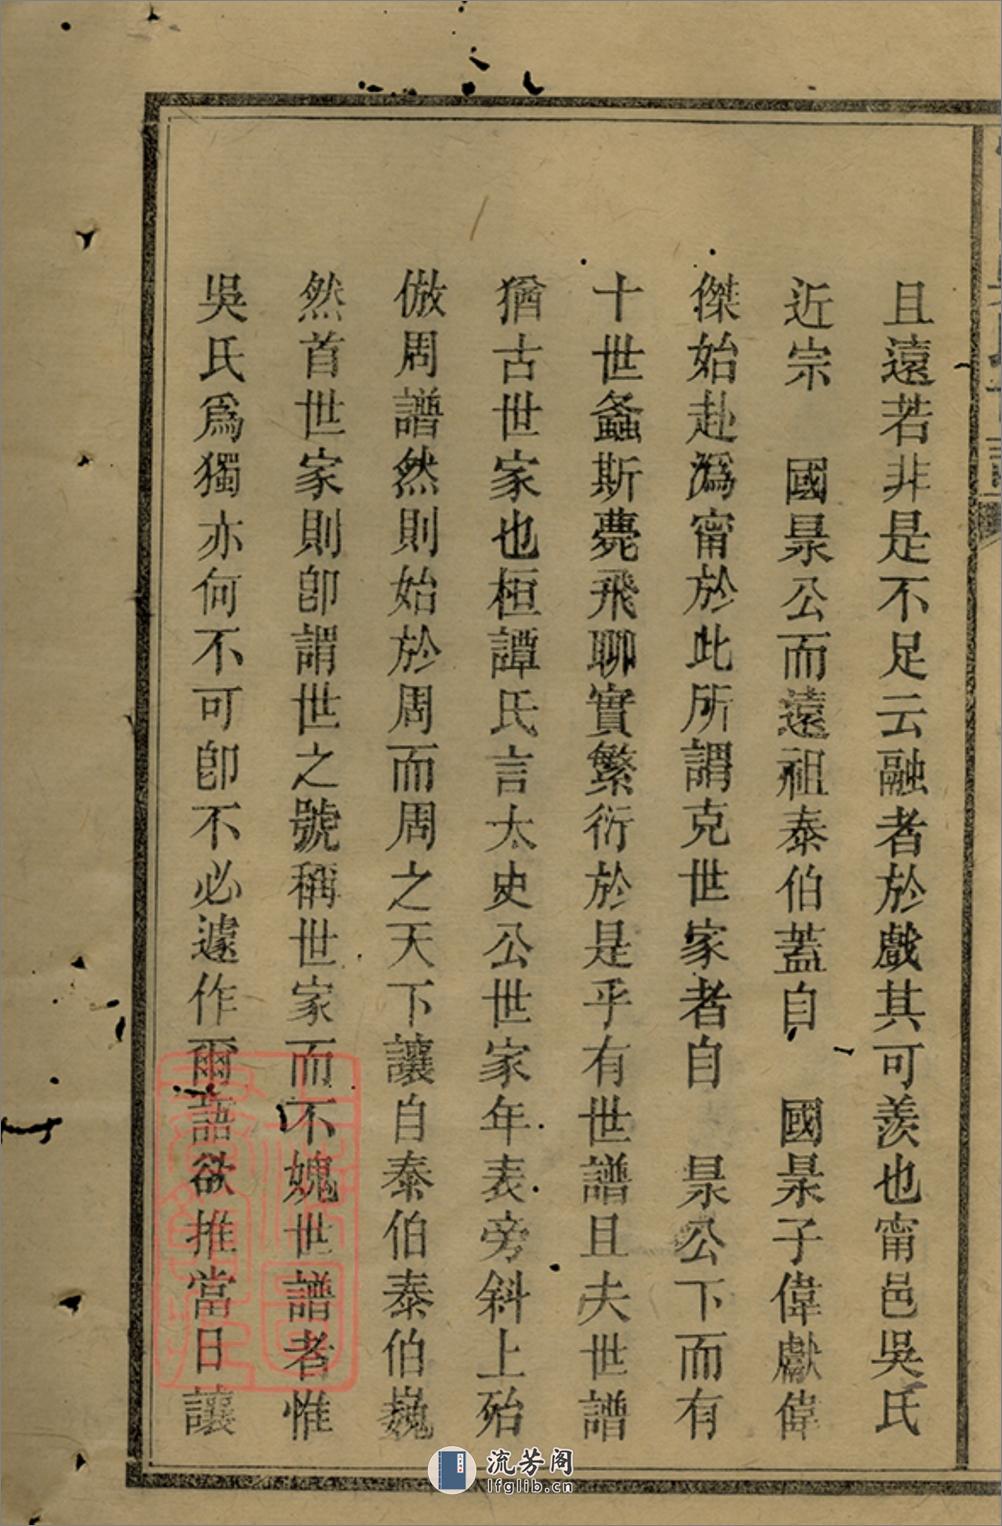 且遠若非是不足云融者於戲其可羨也甯邑吳氏
近宗　國杲公而遠祖泰伯蓋自　國杲子偉獻偉
傑始赴潙甯於此所謂克世家者自　杲公下而有
十世螽斯薨飛聊實繁衍於是乎有世譜且夫世譜
猶古世家也桓譚氏言太史公世家年表旁斜上殆
倣周譜然則始於周而周之天下讓自泰伯泰伯巍
然首世家則卽謂世之號稱世家而不媿世譜者惟
吳氏爲獨亦何不可卽不必遽作爾語欲推當日讓
流芳阁
lfglib.cn